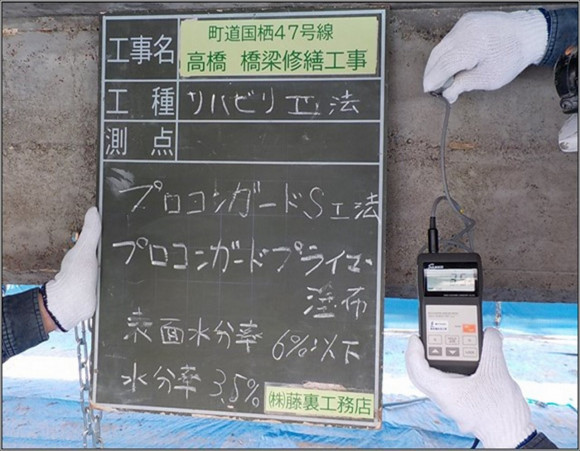 工事名
町道国栖47号線
高橋 橋梁修繕工事
工種 リハビリ工法
測点
プロコンガードS工法
プロコンガードプライマー
塗布
表面水分率 6%以下
水分率 3.5%
㈱藤裏工務店